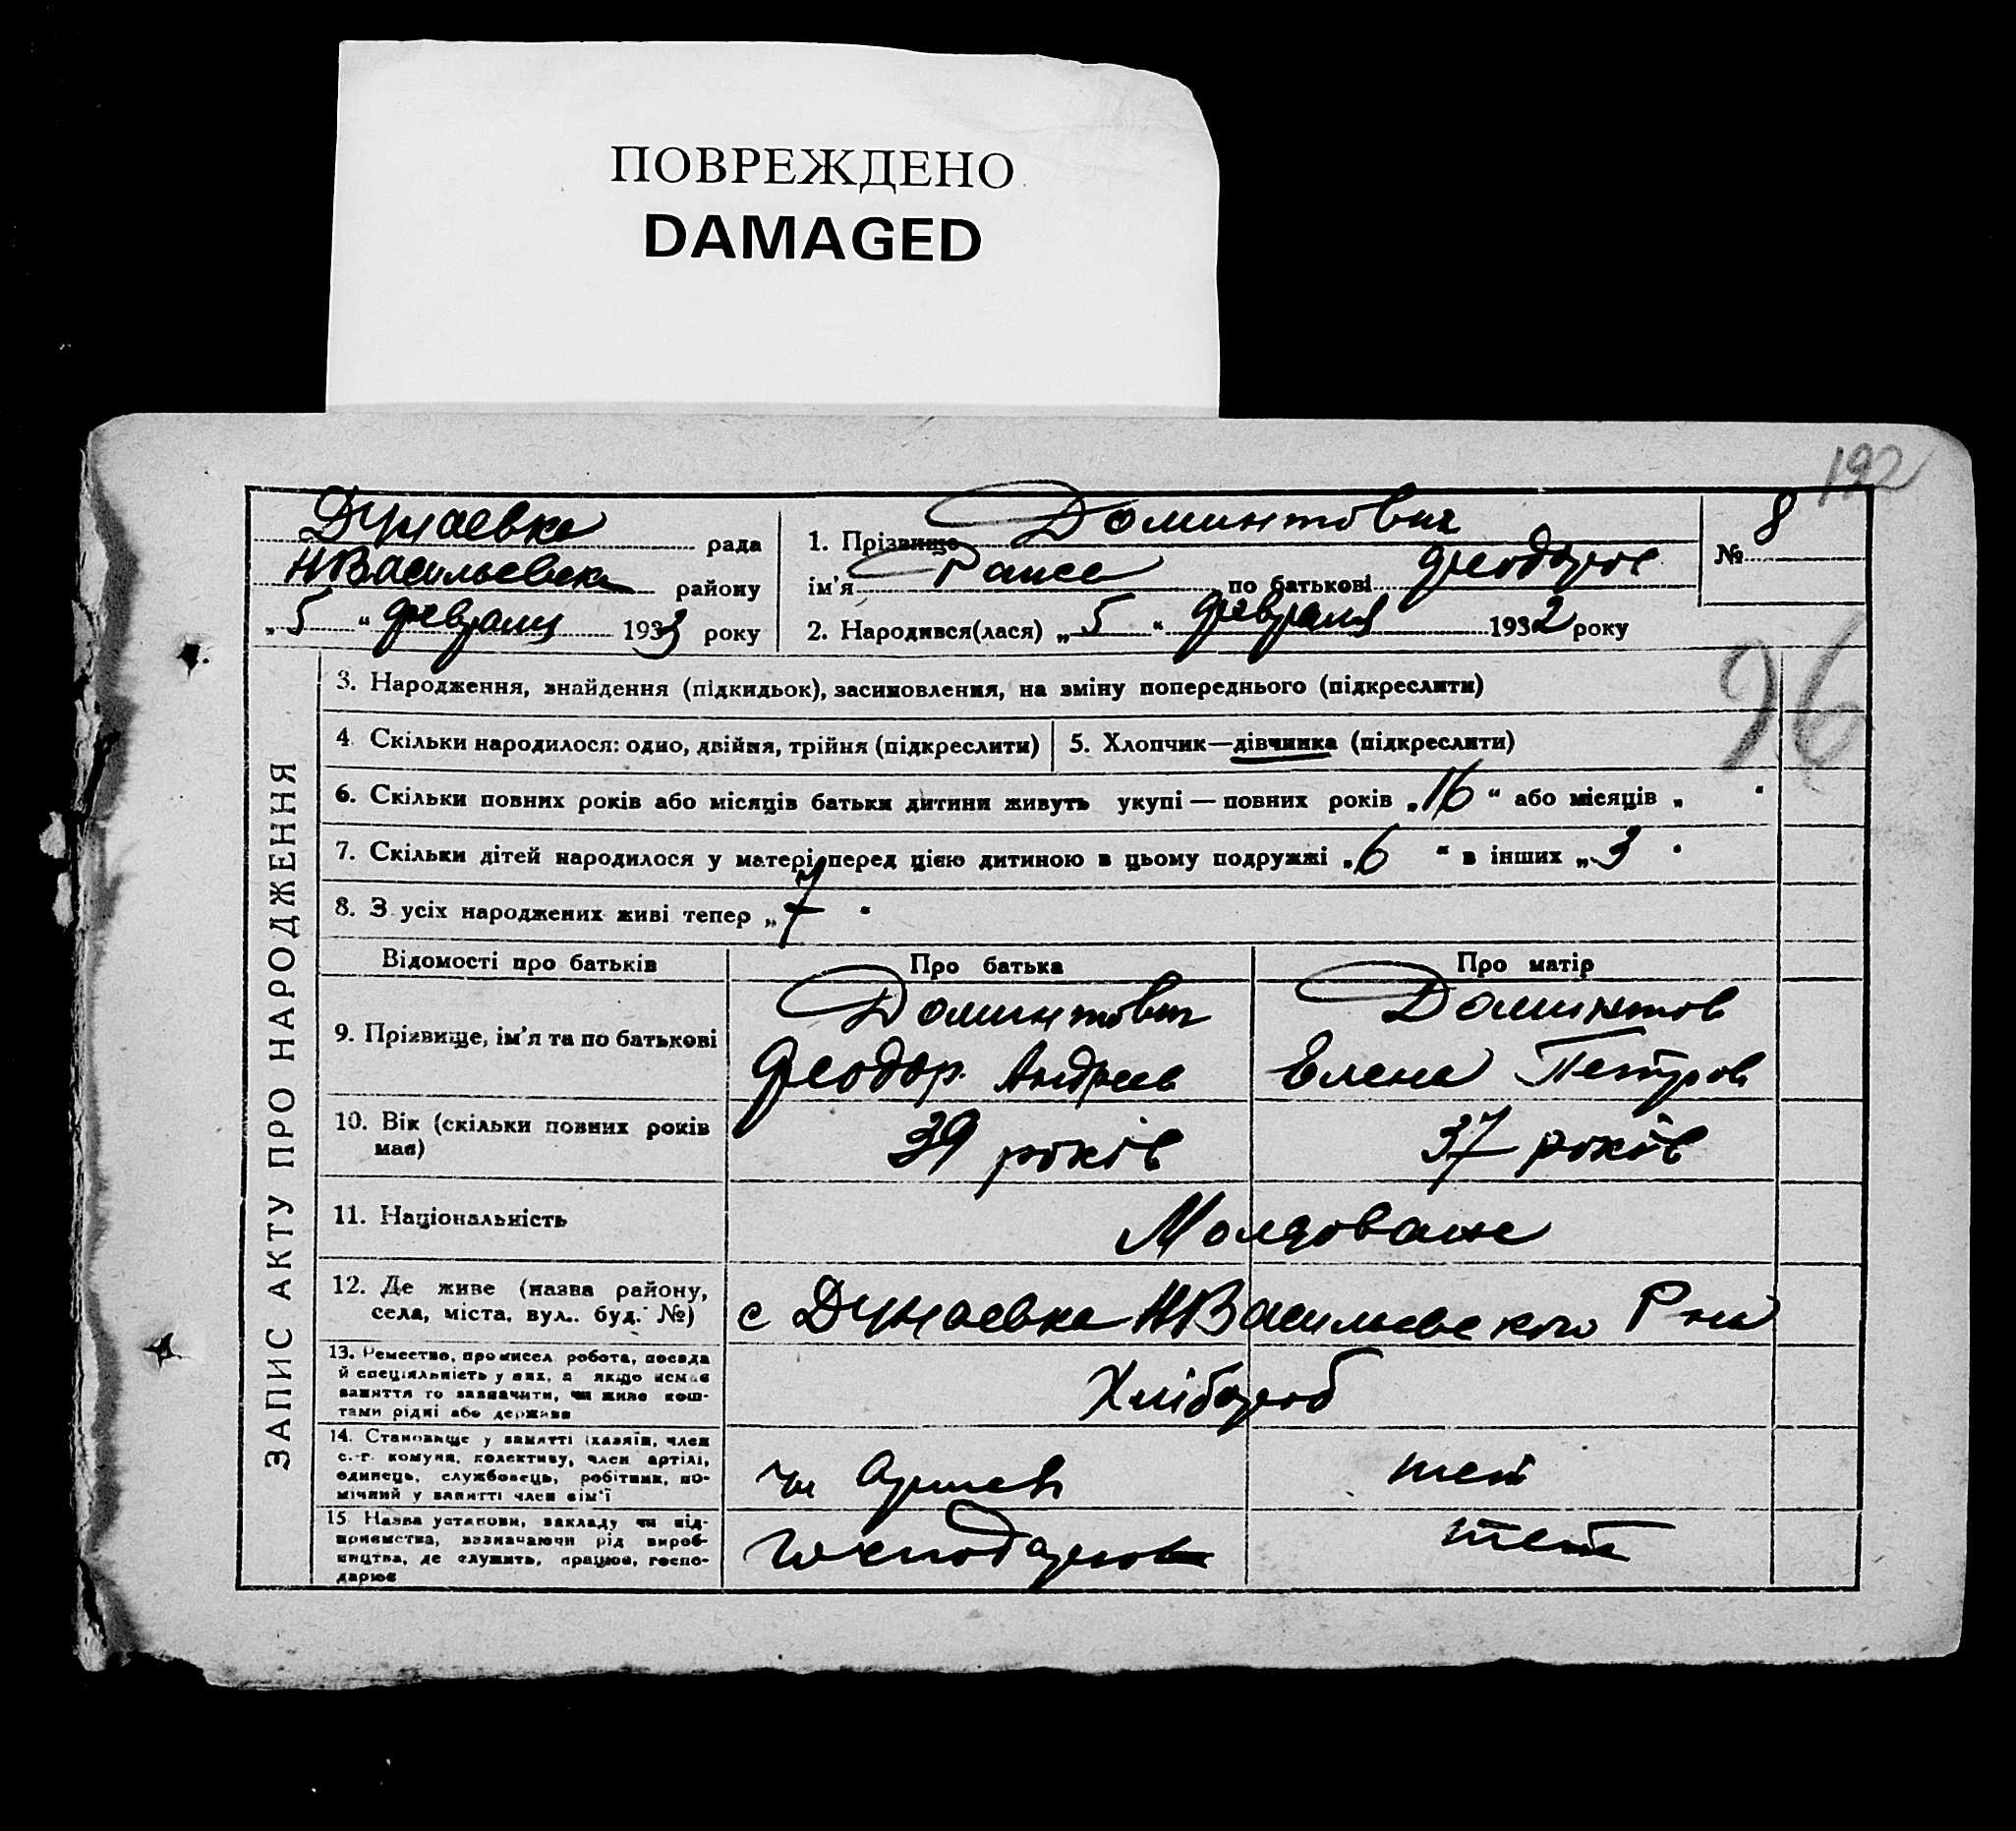 ПОВРЕЖДЕНО
DAMAGED
192
Дунаевка рада
НВасильевск району
„5“ февраля 1933 року
1. Прізвище Доминтович
ім'я Раиса по батькові Феодоров
2. Народився(лася) „5“ февраля 1932 року
№ 8
96
ЗАПИС АКТУ ПРО НАРОДЖЕННЯ
3. Народження, знайдення (підкидьок), засиновлення, на зміну попереднього (підкреслити)
4. Скільки народилося: одно, двійня, трійня (підкреслити)
5. Хлопчик—дівчинка (підкреслити)
6. Скільки повних років або місяців батьки дитини живуть укупі — повних років „16“ або місяців „ “
7. Скільки дітей народилося у матері перед цією дитиною в цьому подружжі „6“ в інших „3“
8. З усіх народжених живі тепер „7“
Відомості про батьків
Про батька
Про матір
9. Прізвище, ім'я та по батькові
Доминтович
Феодор. Андреев
Доминтов
Елена Петров
10. Вік (скільки повних років
має)
39 років
37 років
11. Національність
Молдоване
12. Де живе (назва району,
села, міста, вул.. буд. №)
с Дунаевка НВасильевского Р на
13. Ремество, промисел робота, посада
й спеціяльність у них, а якщо немає
заняття то зазначити, чи живе кош-
тами рідні або держави
Хлібороб
14. Становище у занятті (хазяїн, член
с.-г. комуни, колективу, член артілі,
одинець, службовець, робітник, по-
мічний у занятті член сім'ї
чл Артеві
теж
15. Назва установи, закладу чи під-
приємства, зазначаючи рід вироб-
ництва, де служить, працює, госпо-
дарює
теж